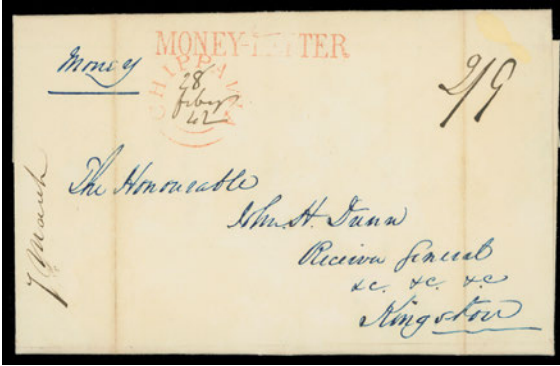 MONEY-LETTER
Money
CHIPPAWA
28
feby
42
2/9
The Honourable
John H. Dunn
Receiver General
&c. &c. &c
Kingston
7 March